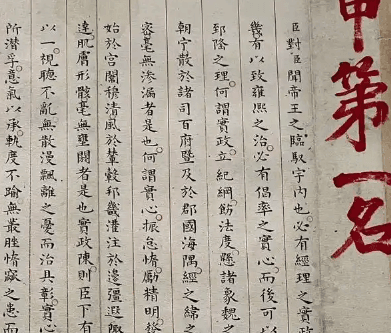 第一名
臣對臣聞帝王之臨馭宇內也必有經理之實政
有以致雍熙之治必有倡率之實心而後可以
郅隆之理何謂實政立紀綱飭法度懸諸象魏之
朝宁散於諸司百府暨及於郡國海隅經之緯之
密毫無滲漏者是也何謂實心振怠惰勵精明
始於宮闈穆清風於輦轂邦畿灌注於邊疆遐陬
達肌膚形骸毫無壅閼者是也實政陳則臣下有
以一視聽不亂無散漫飄離之憂而治具彰實心
所潛孚意氣以承軌度不踰無叢脞惰窳之患而